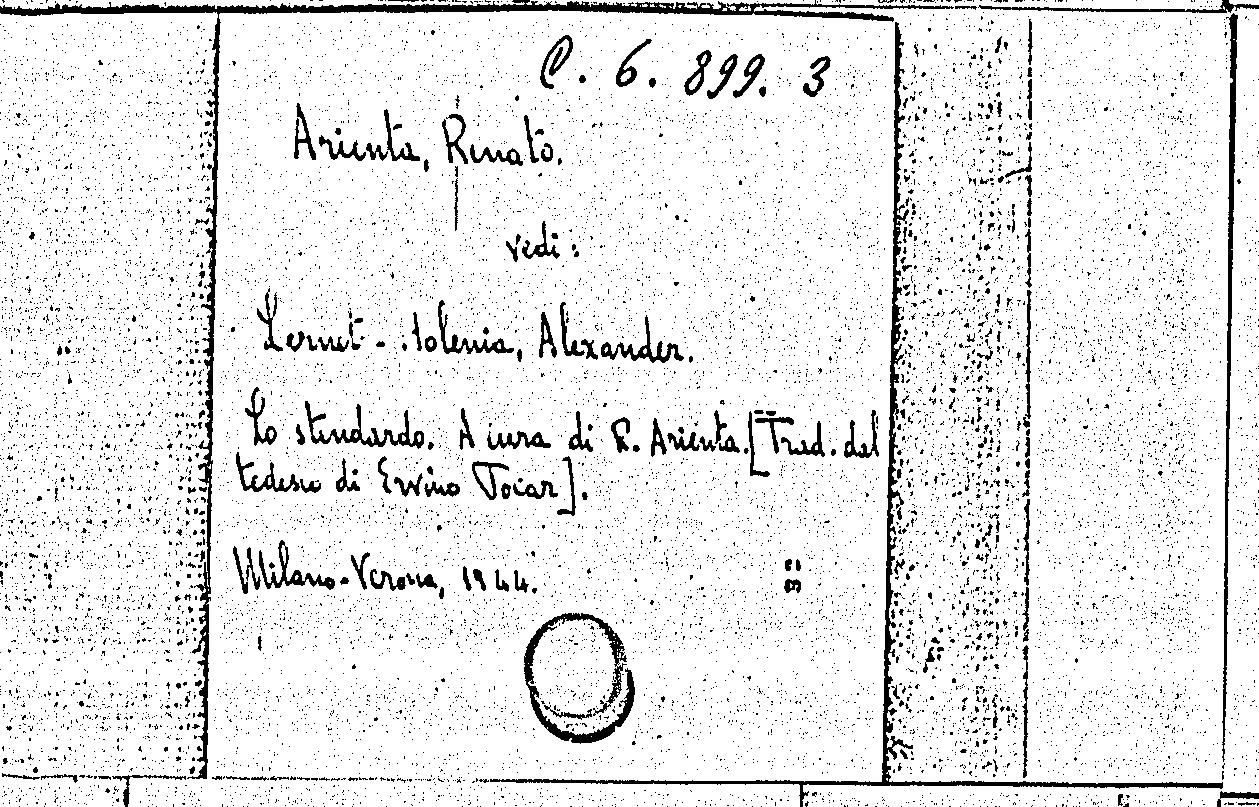 C. 6. 899. 3
Arienta, Renato.
vedi:
Lernet-Holenia, Alexander.
Lo stendardo. A cura di R. Arienta. [Trad. dal
tedesco di Ervino Pocar].
Milano-Verona, 1944.